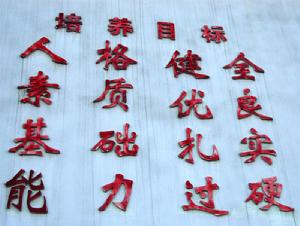 培养目标
人格健全
素质优良
基础扎实
能力过硬